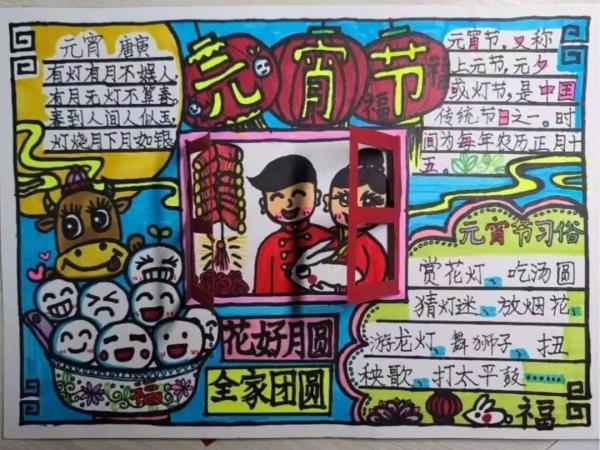 元宵节
福
福
元宵 唐寅
有灯有月不娱人,
有月无灯不算春。
春到人间人似玉,
灯烧月下月如银
元宵节,又称
上元节,元夕
或灯节,是中国
传统节日之一。时
间为每年农历正月十
五。
元宵节习俗
赏花灯、吃汤圆
猜灯迷、放烟花、
游龙灯、舞狮子、扭
秧歌、打太平鼓……
花好月圆
全家团圆
福
福